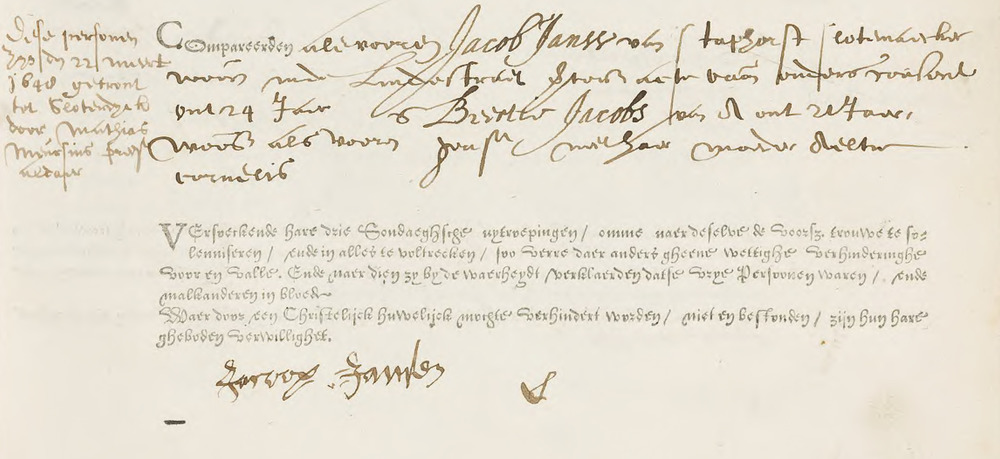 Dese personen
zijn den 22 meert
1648 getrout
tot Sloterdijck
door Mathias
Meursius pre
aldaer
Compareerden als vooren Jacob Janss van staphorst slotemaecker
woon inde Lindestraet geen ouders
out 24 Jaer & Jacobs van A out 21 Jaer,
woon als vooren met haer moeder Aeltie
cornelis
VErsoeckende hare drie Sondaeghsche uytroepingen / omme naer deselve de voorsz. trouwe te so-
lenniseren / ende in alles te voltrecken / soo verre daer anders gheene wettighe verhinderinghe
voor en valle. Ende naer dien zy by de waerheydt / verklaerden datse vrye Persoonen waren / ende
malkanderen in bloede
Waer door een Christelijck huwelijck mochte verhindert worden / niet en bestonden / zijn hun hare
gheboden verwillighet.
Jacop Jansen